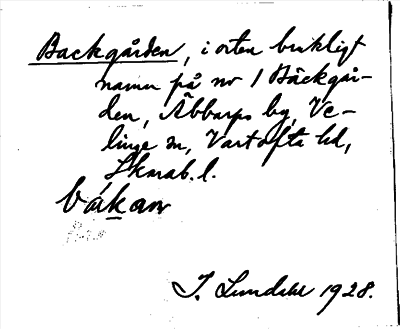 Backgården, i orten brukligt
namn på nr 1 Bäckgår-
den, Äbbarps by, Ve-
linge sn, Vartofta hd,
Skarab. l.
I. Lundahl 1928.